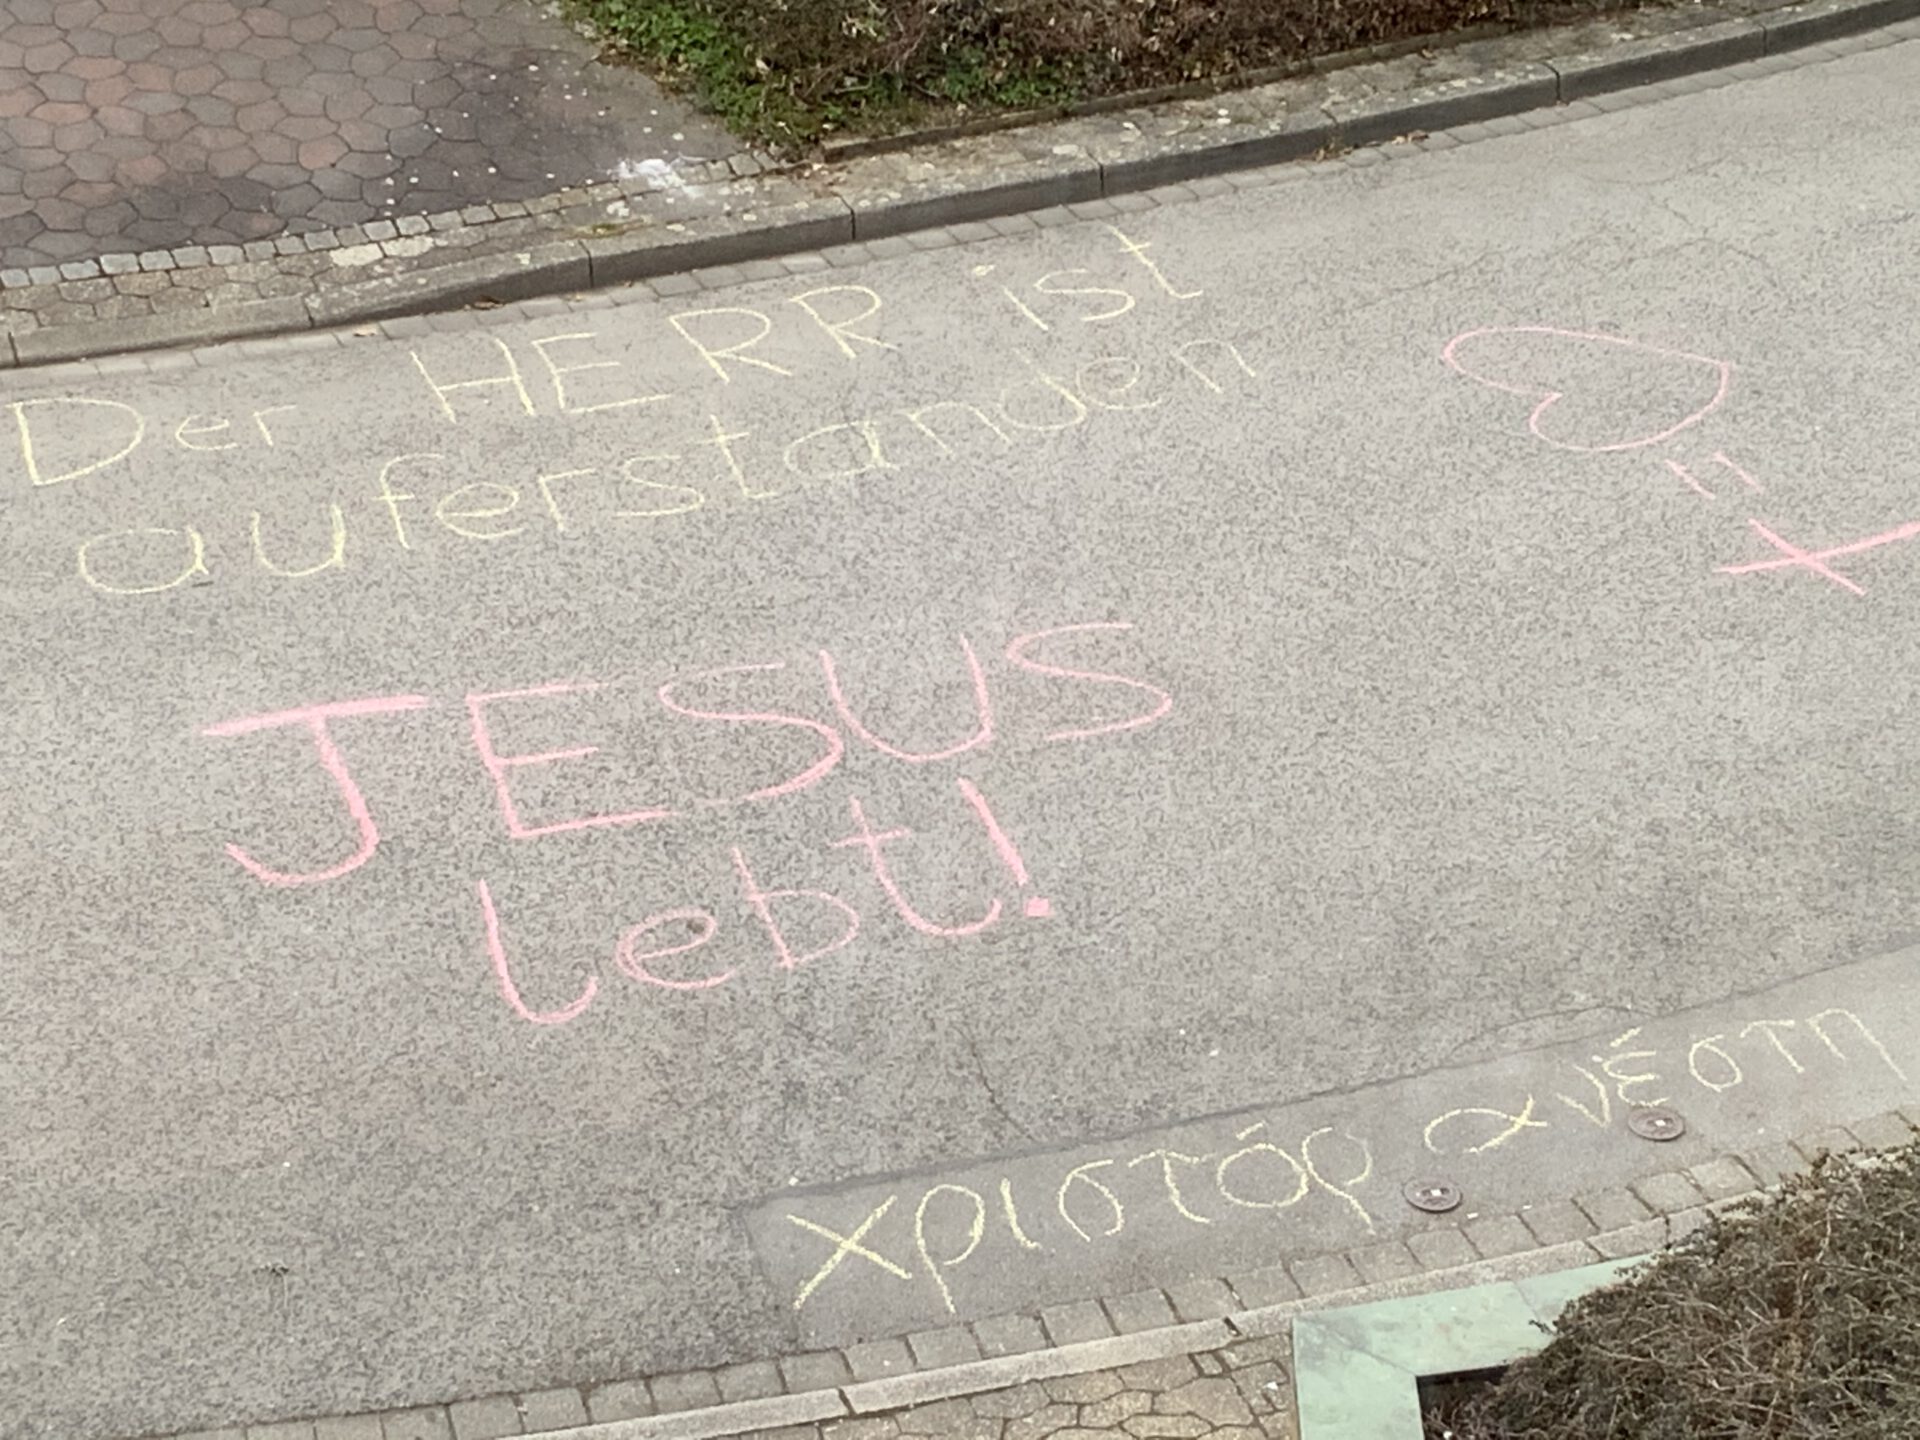 Der HERR ist
auferstanden
JESUS
lebt!
χριστός ανέστη